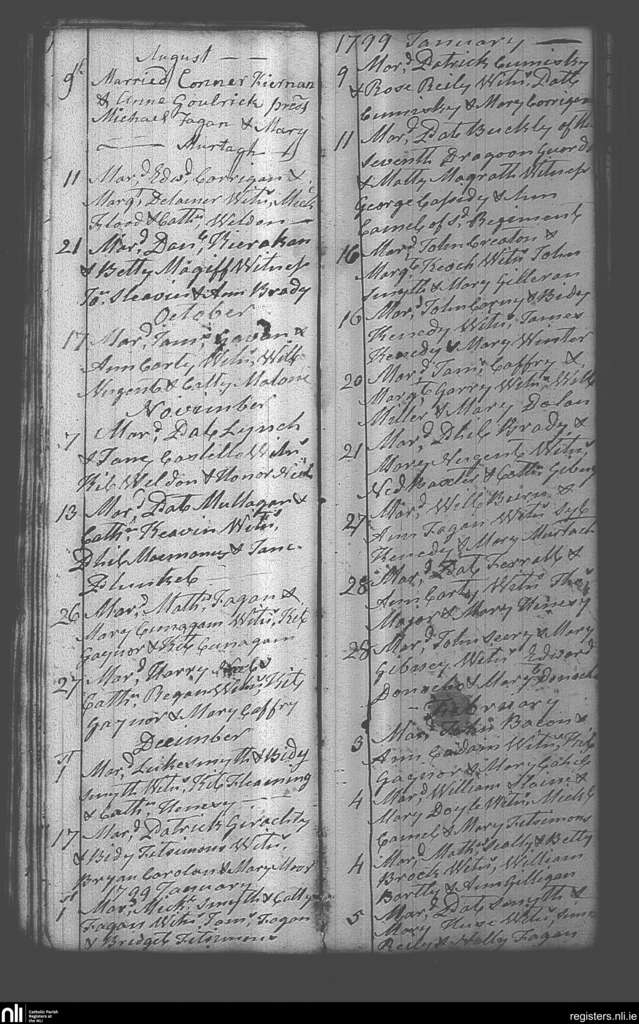 August
9th Married Conner Kiernan
& Anne Goulrick pres
Michael Fagan & Mary
Murtagh
11 Mard Edwd Corrigan &
Margt Delamer Witns Mick
Floord & Cathn Weldon
21 Mard Danl Kierakan
& Betty Magiff Witness
Jas Sleavin & Ann Brady
October
17 Mard Jams Gavan &
Ann Carty Witns Willm
Nugent & Catty Malone
November
7 Mard Patt Lynch
& Jane Costello Witns
Kit Weldon & Honor
13 Mard Patt Mullagan &
Cathn Reavin Witns
Phil & Jane
Plunket
26 Mard Mathw Fagan &
Mary Cunagam Witns Kit
Gaynor & Kitt Cunagam
27 Mard Harry
Cathn Regan Witns Kit
Gaynor & Mary Caffry
December
1st Mard Luke Smyth & Bidy
Smyth Witns Kit Fleaming
& Cathn Henesy
17 Mard Patrick Geraghty
& Bidy Fitsimons Witns
Bryan Carolan & Mary Moor
1799 January
1st Mard Mickl Smyth & Catty
Fagan Witns Jams Fagan
& Bridget Fitsimons
1799 January
9 Mard Patrick Cumisky
& Rose Reily Witns Patt
Cumisky & Mary Corrigan
11 Mard Patt Buckly of the
Seventh Dragoon Guards
& Matty Magrath Witness
George Cassedy & Ann
Camel of sd Regement
16 Mard John Creaton &
Margt Keoch Witns John
Smyth & Mary Gilleran
16 Mard John Corny & Bidy
Kenedy Witns James
Kenedy & Mary Winter
20 Mard Jams Caffry &
Margt Garry Witns Willm
Miller & Mary Dolan
21 Mard Phil Brady &
Mary Nugent Witns
Ned Baxter & Cathn
27 Mard Willm Burn &
Ann Fagan Witns
Kenedy & Mary Murtach
28 Mard Patt Farrall &
Ann Carty Witns Thos
Major & Mary Henesy
28 Mard John Seery & Mary
Gibsey Witns Edward
Donochoe & Mary Donochoe
February
3 Mard John Bacon &
Ann Witns Kit
Gaynor & Mary Cahil
4 Mard William Slaine &
Mary Doyle Witns Mickl
Camel & Mary Fitsimons
4 Mard Mathw Scally & Betty
Brock Witns William
Bartly & Ann Gilligan
5 Mard Patt Smyth &
Mary Huse Witns
Reily & Nelly Fagan
nli Catholic Parish
Registers at
the NLI
registers.nli.ie